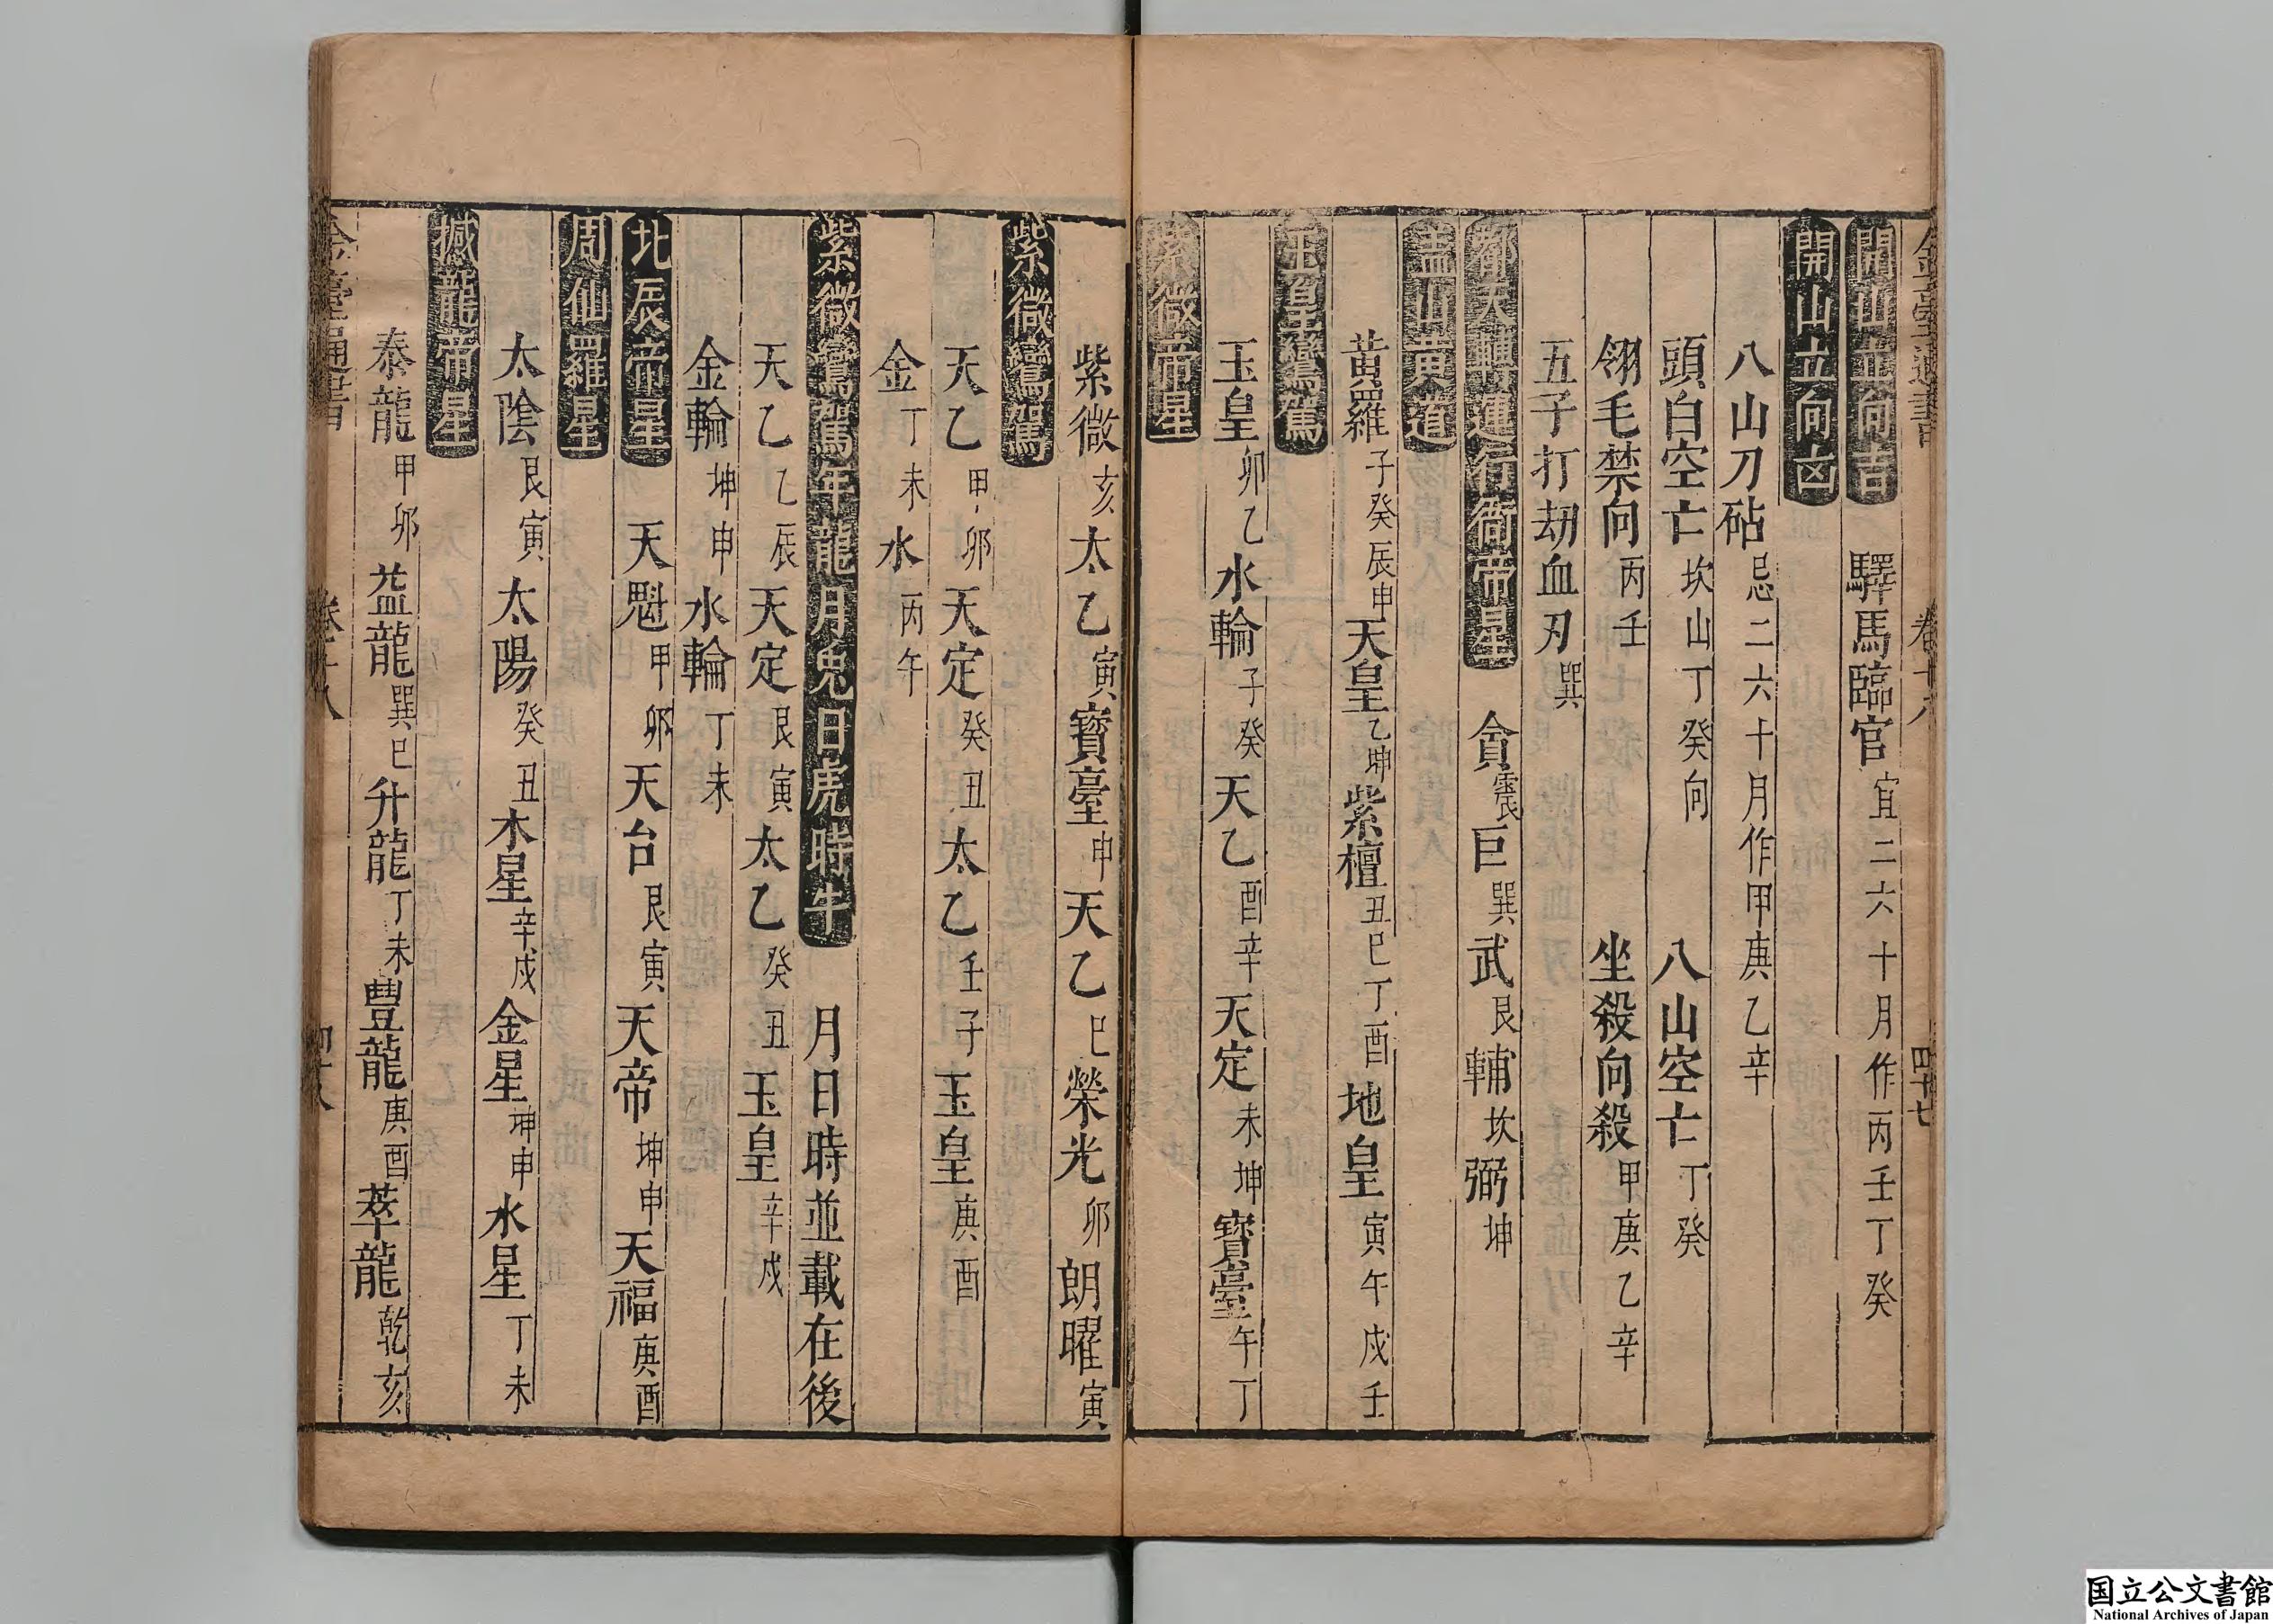 金臺通書 卷十八 四十七
開山立向吉 驛馬臨官宜二六十月作丙壬丁癸
開山立向凶
八山刀砧忌二六十月作甲庚乙辛
頭白空亡坎山丁癸向 八山空亡丁癸
翎毛禁向丙壬 坐殺向殺甲庚乙辛
五子打劫血刃巽
都天轉運行衙帝星 貪震巨巽武艮輔坎弼坤
盖山黄道
黄羅子癸辰申天皇乙坤紫檀丑巳丁酉地皇寅午戌壬
玉皇鑾駕
玉皇卯乙水輪子癸天乙酉辛天定未坤寳臺午丁
紫微帝星
紫微亥太乙寅寳臺申天乙巳榮光卯朗曜寅
紫微鑾駕
天乙甲卯天定癸丑太乙壬子玉皇庚酉
金丁未水丙午
紫微鑾駕年龍月兔日虎時牛 月日時並載在後
天乙乙辰天定艮寅太乙癸丑玉皇辛戌
金輪坤申水輪丁未
北辰帝星 天魁甲卯天台艮寅天帝坤申天福庚酉
周仙羅星
太陰艮寅太陽癸丑木星辛戌金星坤申水星丁未
撼龍帝星
泰龍甲卯益龍巽巳升龍丁未豐龍庚酉萃龍乾亥
金臺通書 卷十八 四十八
国立公文書館
National Archives of Japan